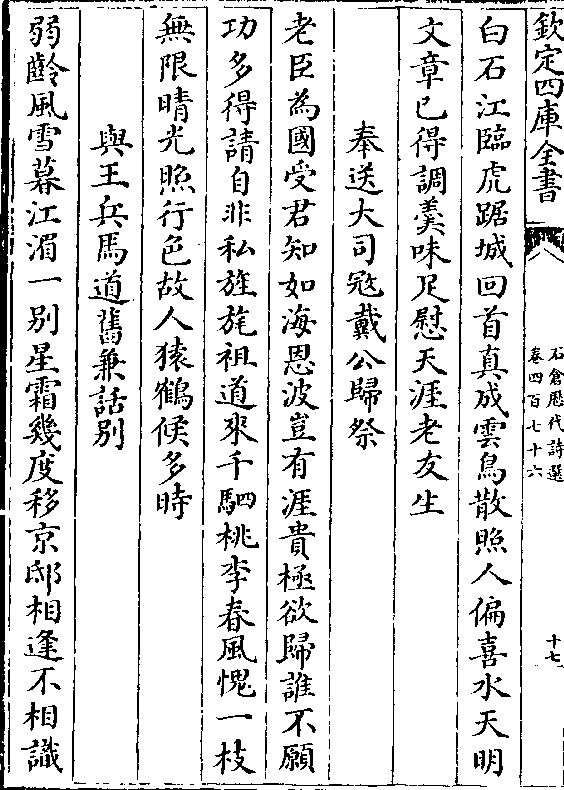 欽定四庫全書
石倉歴代詩選
卷四百七十六
十七
白石江臨虎踞城回首真成雲鳥散照人偏喜水天明
文章已得調羹味足慰天涯老友生
奉送大司宼戴公歸祭
老臣為國受君知如海恩波豈有涯貴極欲歸誰不願
功多得請自非私旌旄祖道來千駟桃李春風愧一枝
無限晴光照行色故人猿鶴候多時
與王兵馬道舊兼話别
弱齡風雪暮江湄一别星霜幾度移京邸相逢不相識